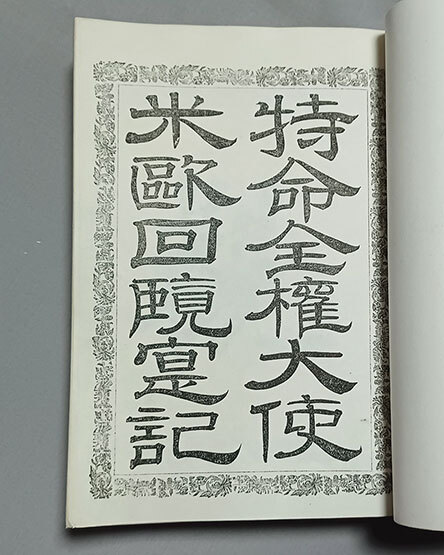 特命全權大使
米歐回覧寔記